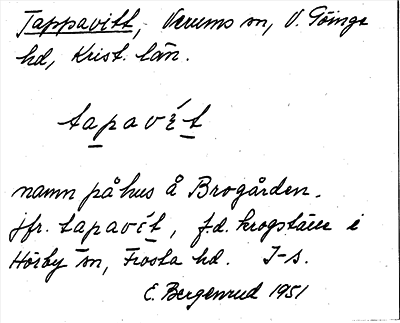 Tappavitt, Verums sn, V. Göinge
hd, Krist. län.
tapavɛ́t
namn på hus å Brogården.
jfr. tapavɛ́t, f.d. krogställe i
Hörby sn, Frosta hd. I-s.
E. Bergenrud 1951